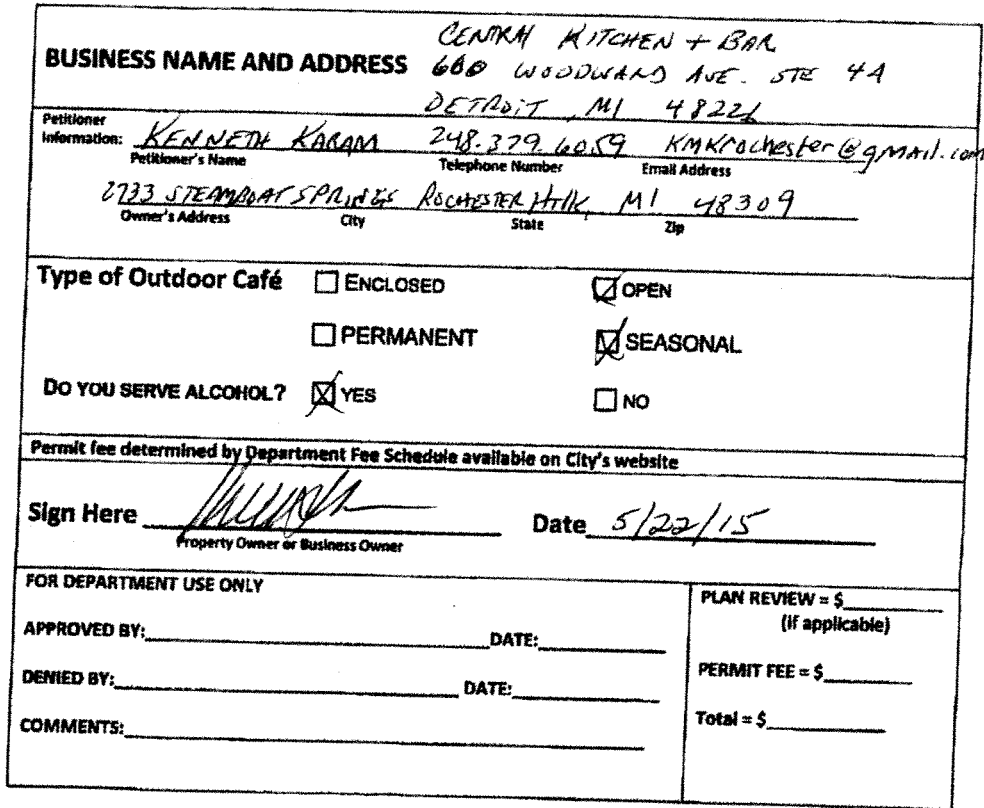 CENTRAL KITCHEN + BAR
BUSINESS NAME AND ADDRESS 660 WOODWARD AVE. STE 4A
DETROIT, MI 48226
Petitioner
Information: KENNETH KARAM 248.379.6059 KMKrochester@gmail.com
Petitioner's Name Telephone Number Email Address
2733 STEAMBOAT SPRINGS ROCHESTER Hills, MI 48309
Owner's Address City State Zip
Type of Outdoor Café ENCLOSED OPEN
PERMANENT SEASONAL
DO YOU SERVE ALCOHOL? YES NO
Permit fee determined by Department Fee Schedule available on City's website
Sign Here Date 5/22/15
Property Owner or Business Owner
FOR DEPARTMENT USE ONLY
PLAN REVIEW = $
(if applicable)
APPROVED BY: DATE:
PERMIT FEE = $
DENIED BY: DATE:
Total = $
COMMENTS: